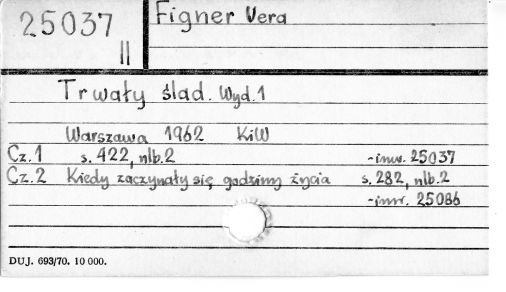 25037
II
Figner Vera
Trwały ślad. Wyd. 1
Warszawa 1962 KiW
Cz. 1 s. 422, nlb. 2 -inw. 25037
Cz. 2 Kiedy zaczynały się godziny życia s. 282, nlb. 2
-inw. 25086
DUJ. 693/70. 10 000.